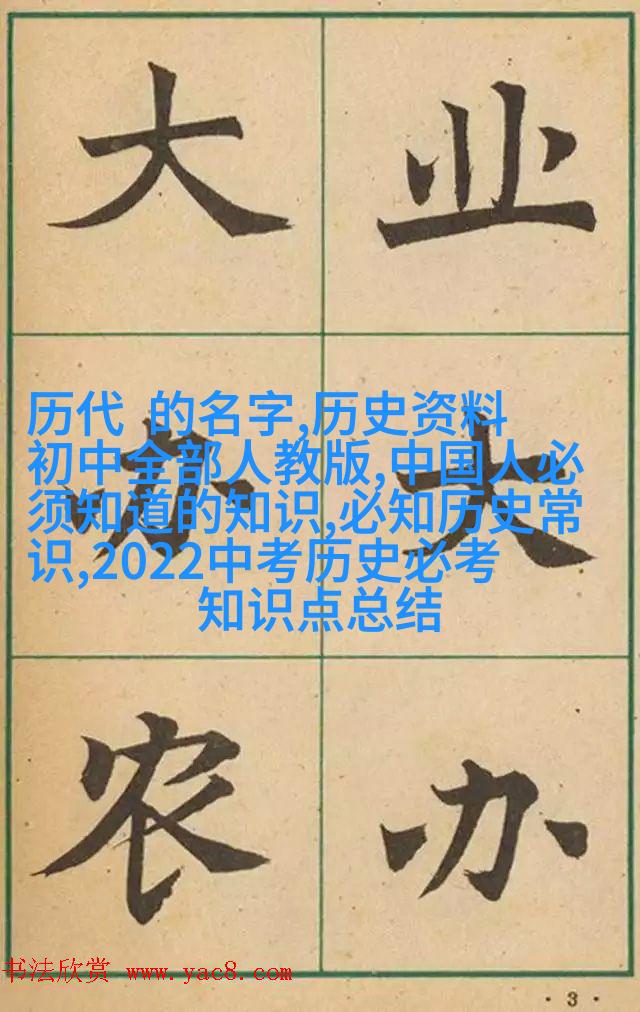 大办农
业大办
历代 的名字,历史资料
初中全部人教版,中国人必
须知道的知识,必知历史常
识,2022中考历史必考
知识点总结
书法欣赏 www.yac8.com
·3·